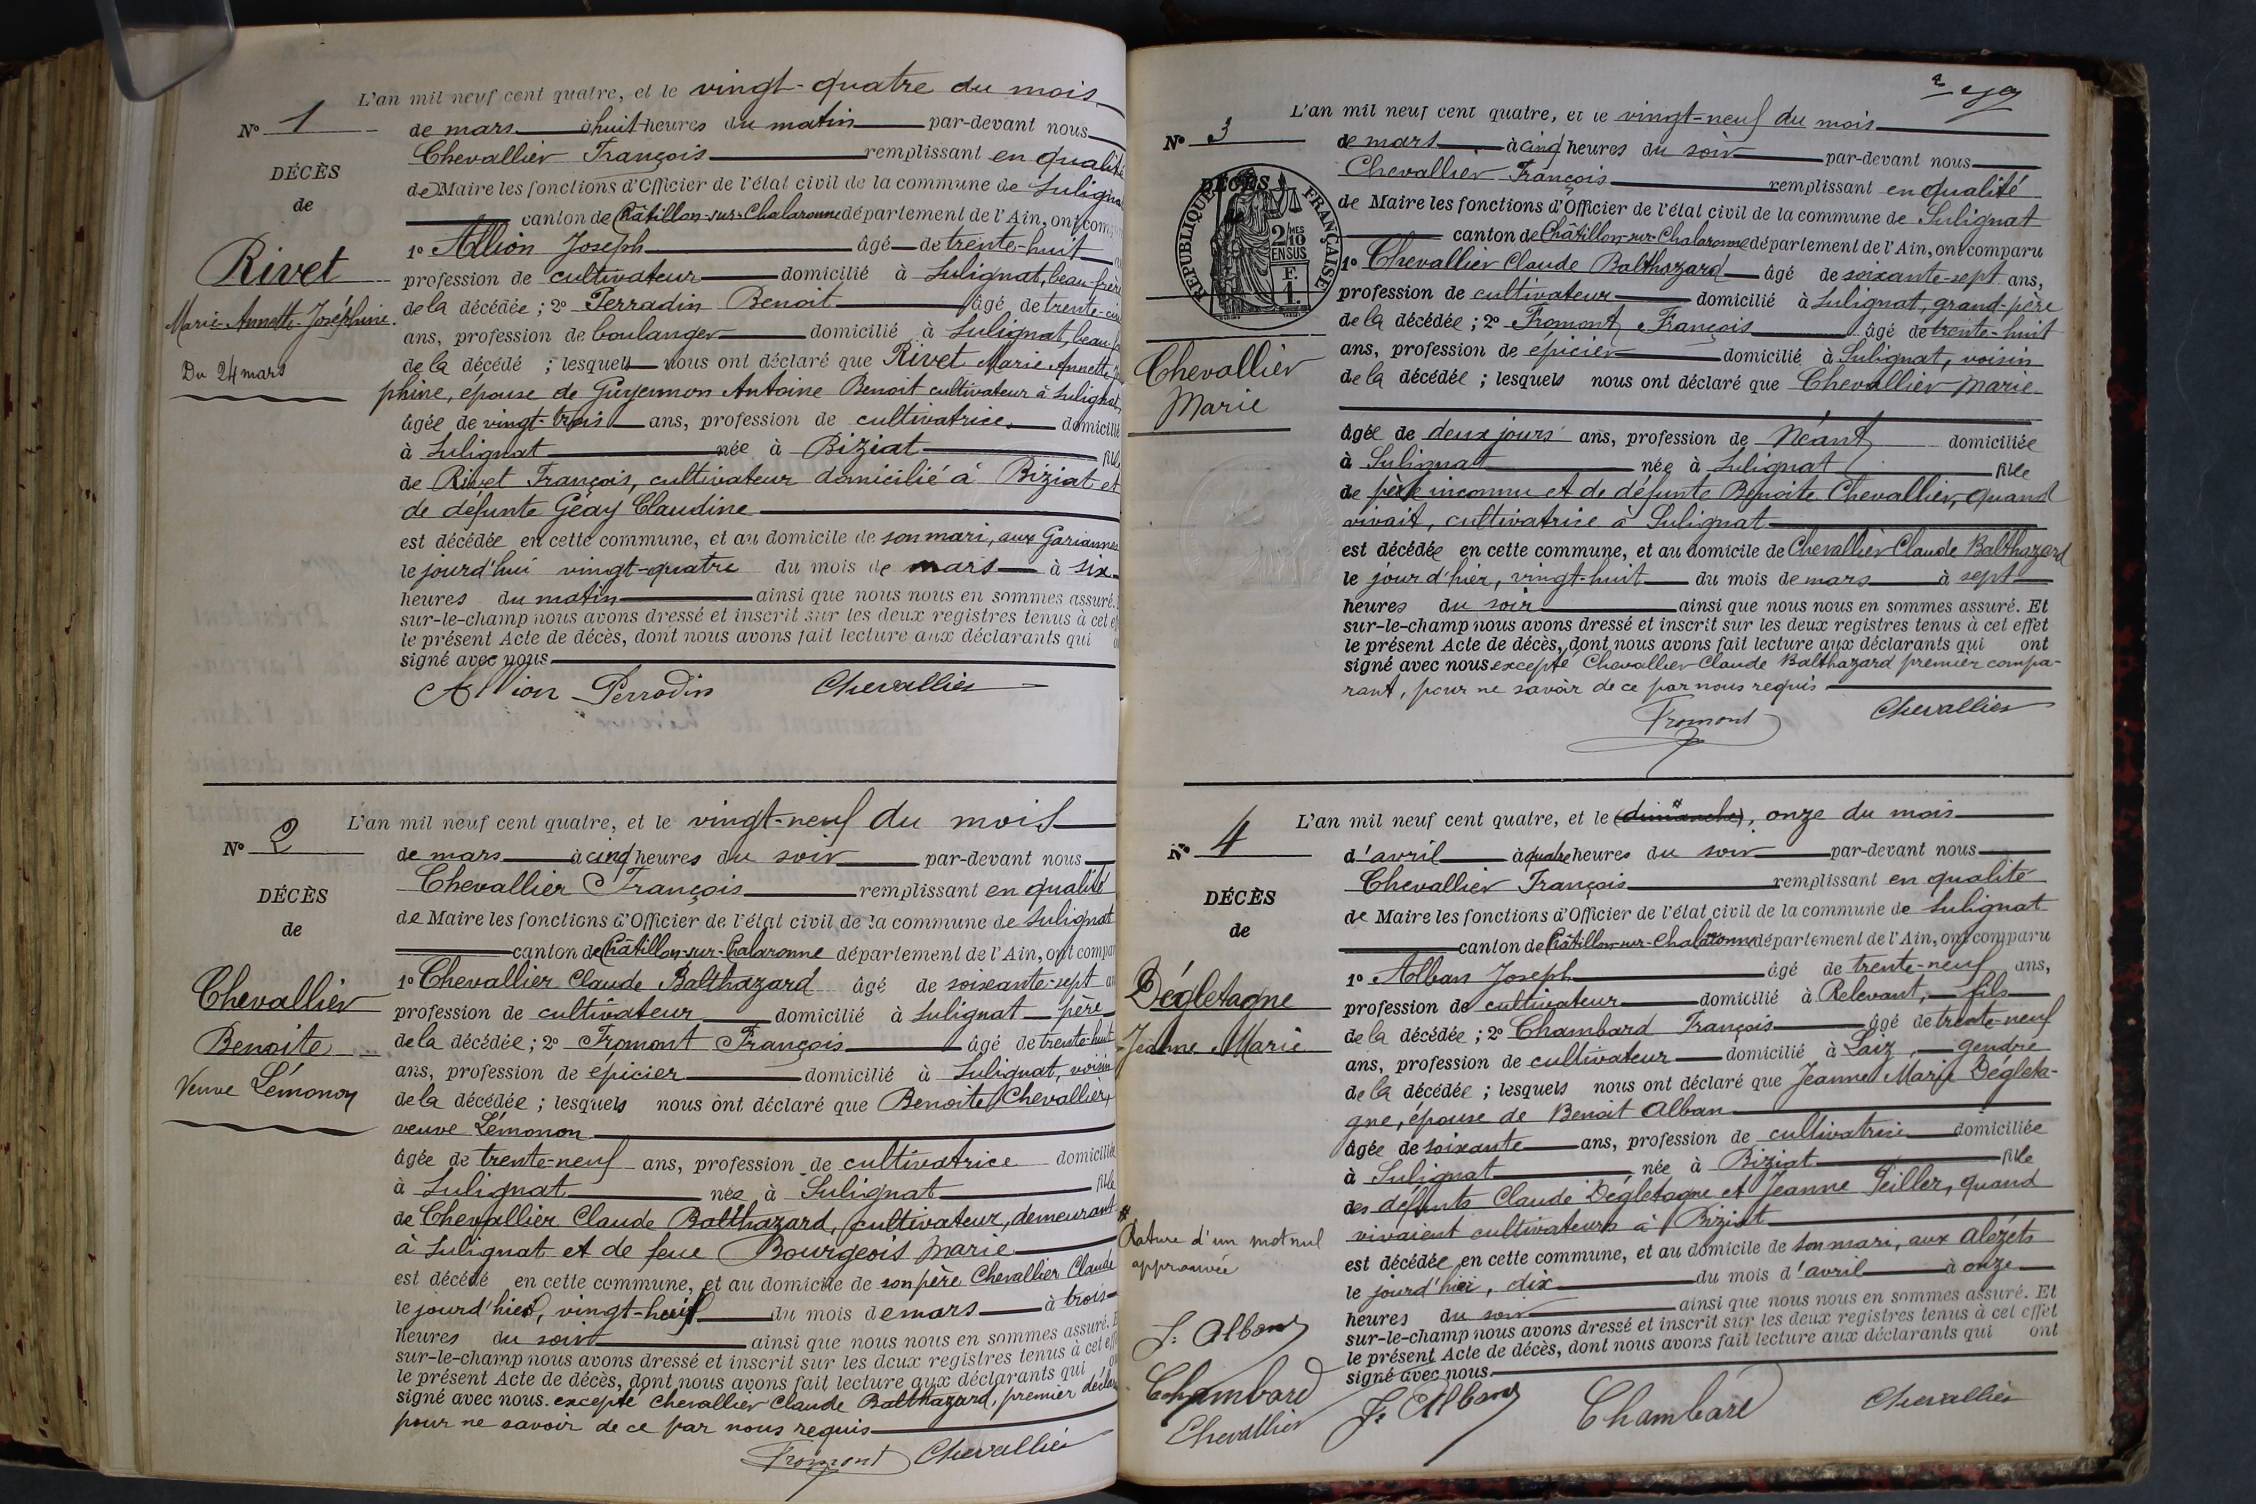 L'an mil neuf cent quatre, et le vingt-quatre du mois
N° 1
de mars à huit heures du matin par-devant nous
Chevallier François remplissant en qualité
DÉCÈS
de Maire les fonctions d'Officier de l'état civil de la commune de Sulignat
de
canton de Châtillon-sur-Chalaronne département de l'Ain, ont comparu
1° Allion Joseph âgé de trente-huit
Rivet
profession de cultivateur domicilié à Sulignat, beau-frère
Marie-Annette-Joséphine.
de la décédée ; 2° Perradin Benoit âgé de trente-
ans, profession de boulanger domicilié à Sulignat, beau-
Du 24 mars
de la décédé ; lesquels nous ont déclaré que Rivet Marie Annette
phine, épouse de Guyennon Antoine Benoit cultivateur à Sulignat,
âgée de vingt-trois ans, profession de cultivatrice, domicilié
à Sulignat née à Biziat fille
de Rivet François, cultivateur domicilié à Biziat et
de défunte Geay Claudine
est décédée en cette commune, et au domicile de son mari, aux Gariannes
le jourd'hui vingt-quatre du mois de mars à six
heures du matin ainsi que nous nous en sommes assuré.
sur-le-champ nous avons dressé et inscrit sur les deux registres tenus à cet
le présent Acte de décès, dont nous avons fait lecture aux déclarants qui
signé avec nous
Allion Perradin Chevallier
L'an mil neuf cent quatre, et le vingt-neuf du mois
N° 2
de mars à cinq heures du soir par-devant nous
Chevallier François remplissant en qualité
DÉCÈS
de Maire les fonctions d'Officier de l'état civil de la commune de Sulignat
de
canton de Châtillon-sur-Chalaronne département de l'Ain, ont compar
1° Chevallier Claude Balthazard âgé de soixante-sept
Chevallier
profession de cultivateur domicilié à Sulignat père
Benoite
de la décédée ; 2° Fromont François âgé de trente-huit
ans, profession de épicier domicilié à Sulignat, voisin
Veuve Lémonon
de la décédée ; lesquels nous ont déclaré que Benoite Chevallier,
veuve Lémonon
âgée de trente-neuf ans, profession de cultivatrice domiciliée
à Sulignat née à Sulignat fille
de Chevallier Claude Balthazard, cultivateur, demeurant
à Sulignat et de feue Bourgeois Marie
est décédé en cette commune, et au domicile de son père Chevallier Claude
le jourd'hier, vingt-huit du mois de mars à trois
heures du soir ainsi que nous nous en sommes assuré.
sur-le-champ nous avons dressé et inscrit sur les deux registres tenus à cet
le présent Acte de décès, dont nous avons fait lecture aux déclarants qui
signé avec nous excepté Chevallier Claude Balthazard, premier
pour ne savoir de ce par nous requis
Fromont Chevallier
L'an mil neuf cent quatre, et le vingt-neuf du mois
N° 3
de mars à cinq heures du soir par-devant nous
Chevallier François remplissant en qualité
DÉCÈS
de Maire les fonctions d'Officier de l'état civil de la commune de Sulignat
RÉPUBLIQUE FRANÇAISE
2/10 MES
EN SUS
F.
1.
canton de Châtillon-sur-Chalaronne département de l'Ain, ont comparu
1° Chevallier Claude Balthazard âgé de soixante-sept ans,
profession de cultivateur domicilié à Sulignat, grand-père
de la décédée ; 2° Fromont François âgé de trente-huit
ans, profession de épicier domicilié à Sulignat, voisin
Chevallier
Marie
de la décédée ; lesquels nous ont déclaré que Chevallier Marie
âgée de deux jours ans, profession de Néant domiciliée
à Sulignat née à Sulignat fille
de père inconnu et de défunte Benoite Chevallier, quand
vivait, cultivatrice à Sulignat
est décédée en cette commune, et au domicile de Chevallier Claude Balthazard
le jour d'hier, vingt-huit du mois de mars à sept
heures du soir ainsi que nous nous en sommes assuré. Et
sur-le-champ nous avons dressé et inscrit sur les deux registres tenus à cet effet
le présent Acte de décès, dont nous avons fait lecture aux déclarants qui ont
signé avec nous excepté Chevallier Claude Balthazard premier compa-
rant, pour ne savoir de ce par nous requis
Fromont Chevallier
L'an mil neuf cent quatre, et le (dimanche), onze du mois
N° 4
d'avril à quatre heures du soir par-devant nous
Chevallier François remplissant en qualité
DÉCÈS
de Maire les fonctions d'Officier de l'état civil de la commune de Sulignat
de
canton de Châtillon-sur-Chalaronne département de l'Ain, ont comparu
1° Alban Joseph âgé de trente-neuf ans,
Dégletagne
profession de cultivateur domicilié à Relevant, fils
Jeanne Marie
de la décédée ; 2° Chambard François âgé de trente-neuf
ans, profession de cultivateur domicilié à Laiz, gendre
de la décédée ; lesquels nous ont déclaré que Jeanne Marie Dégleta-
gne, épouse de Benoit Alban
âgée de soixante ans, profession de cultivatrice domiciliée
à Sulignat née à Biziat fille
des défunts Claude Dégletagne et Jeanne Teiller, quand
vivaient cultivateurs à Biziat
Rature d'un mot nul
approuvée
est décédée en cette commune, et au domicile de son mari, aux Alézets
le jourd'hier, dix du mois d'avril à onze
heures du soir ainsi que nous nous en sommes assuré. Et
sur-le-champ nous avons dressé et inscrit sur les deux registres tenus à cet effet
le présent Acte de décès, dont nous avons fait lecture aux déclarants qui ont
signé avec nous
J. Alban
Chambard
Chevallier
J. Alban Chambard Chevallier